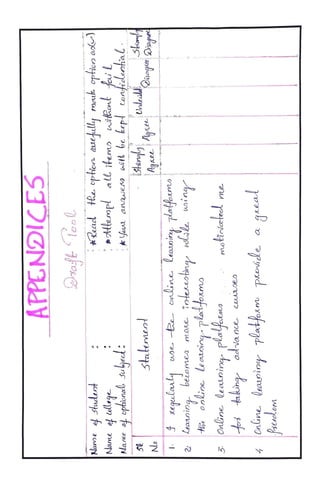 APPENDICES
Draft Tool
Name of student : : *Read the option carefully mark option
Name of college : : *Attempt all items without fail
Name of optional subject : : *Your answers will be kept confidential.
SR No Statement Strongly Agree Agree Undecided Disagree Strongly Disagree
1. I regularly use the online learning platforms
2 Learning becomes more interesting while using
the online learning platforms
3 Online learning platforms motivated me
for taking advance curses
4 Online learning platform provide a great
freedom